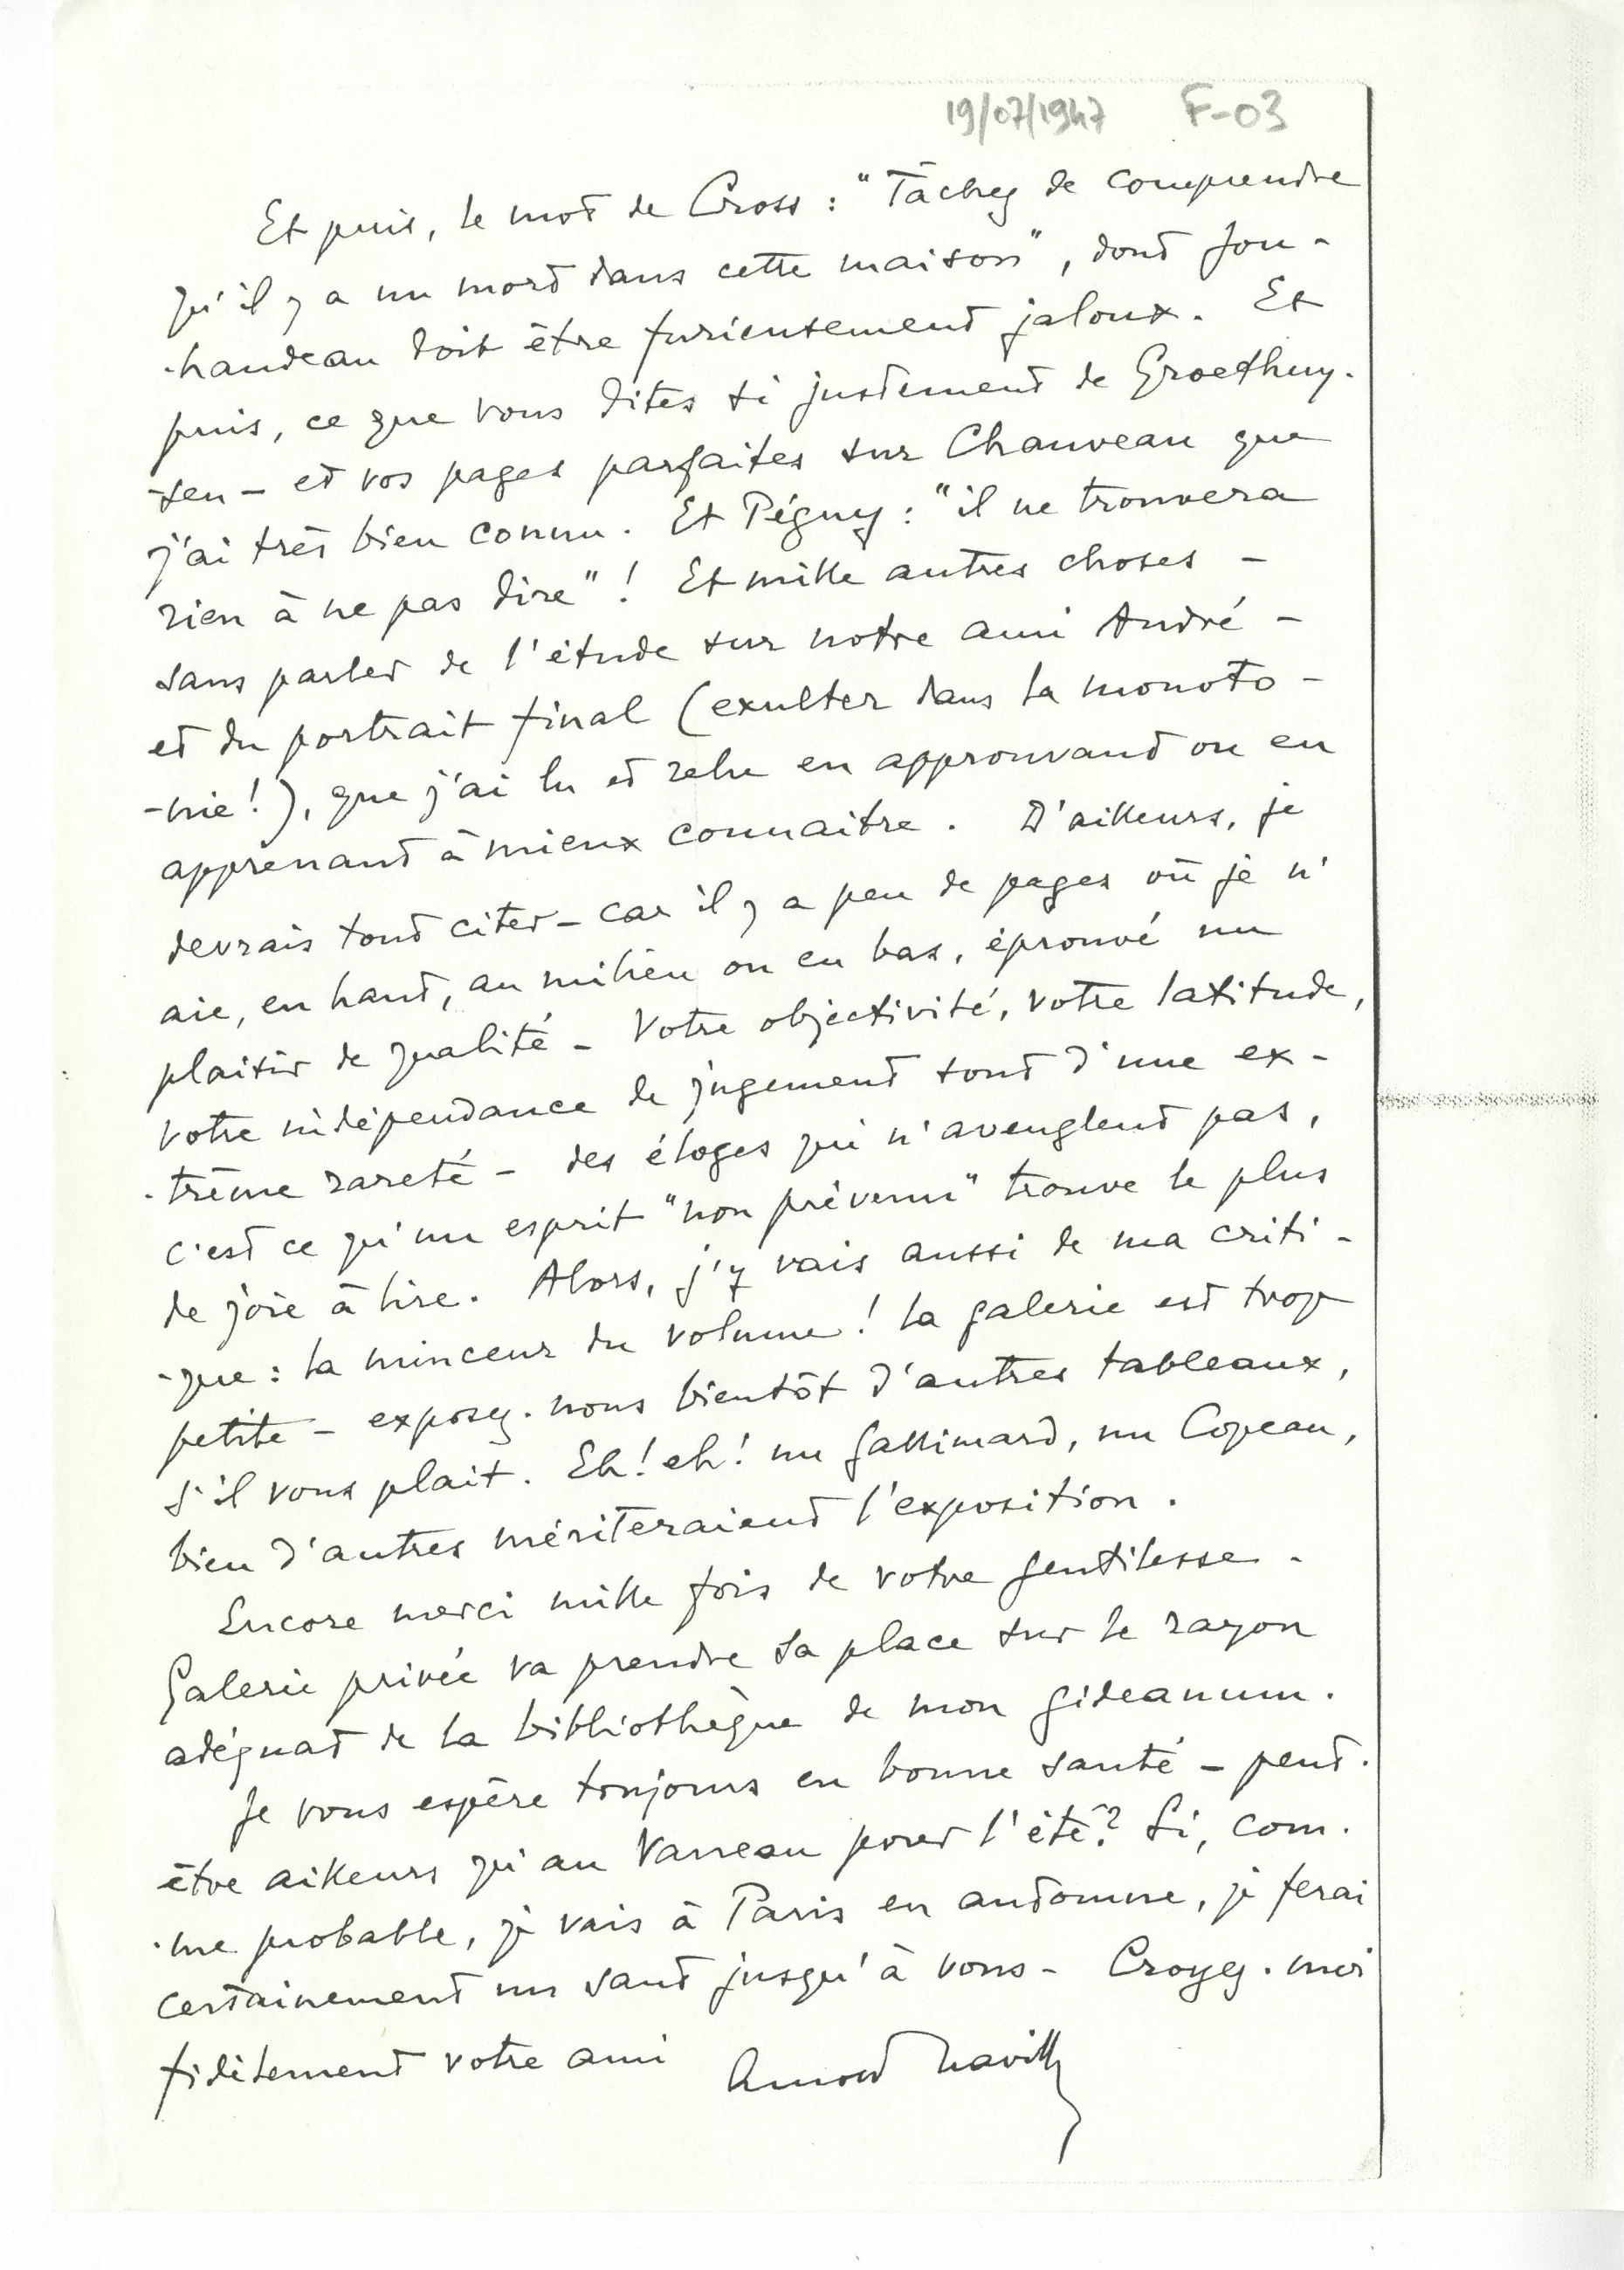 19/07/1947 F-03
Et puis, le mot de Cross : "Tâchez de comprendre
qu'il y a un mort dans cette maison", dont Jou-
-handeau doit être furieusement jaloux. Et
puis, ce que vous dites si justement de Groethuy-
-sen - et vos pages parfaites sur Chauveau que
j'ai très bien connu. Et Péguy : "il ne trouvera
rien à ne pas dire" ! Et mille autres choses -
sans parler de l'étude sur notre ami André -
et du portrait final (exulter dans la monoto-
-nie!), que j'ai lu et relu en approuvant ou en
apprenant à mieux connaitre. D'ailleurs, je
devrais tout citer - car il y a peu de pages où je n'
aie, en haut, au milieu ou en bas, éprouvé un
plaisir de qualité - Votre objectivité, votre latitude,
votre indépendance de jugement sont d'une ex-
-trême rareté - des éloges qui n'aveuglent pas,
c'est ce qu'un esprit "non prévenu" trouve le plus
de joie à lire. Alors, j'y vais aussi de ma criti-
-que : la minceur du volume ! la galerie est trop
petite - exposez-nous bientôt d'autres tableaux,
s'il vous plait. Eh! eh! un Gallimard, un Copeau,
bien d'autres mériteraient l'exposition.
Encore merci mille fois de votre gentillesse -
Galerie privée va prendre sa place sur le rayon
adéquat de la bibliothèque de mon gideanum.
Je vous espère toujours en bonne santé - peut-
être ailleurs qu'au Vanneau pour l'été? Si, com-
-me probable, je vais à Paris en automne, je ferai
certainement un saut jusqu'à vous - Croyez-moi
fidèlement votre ami Arnold Naville